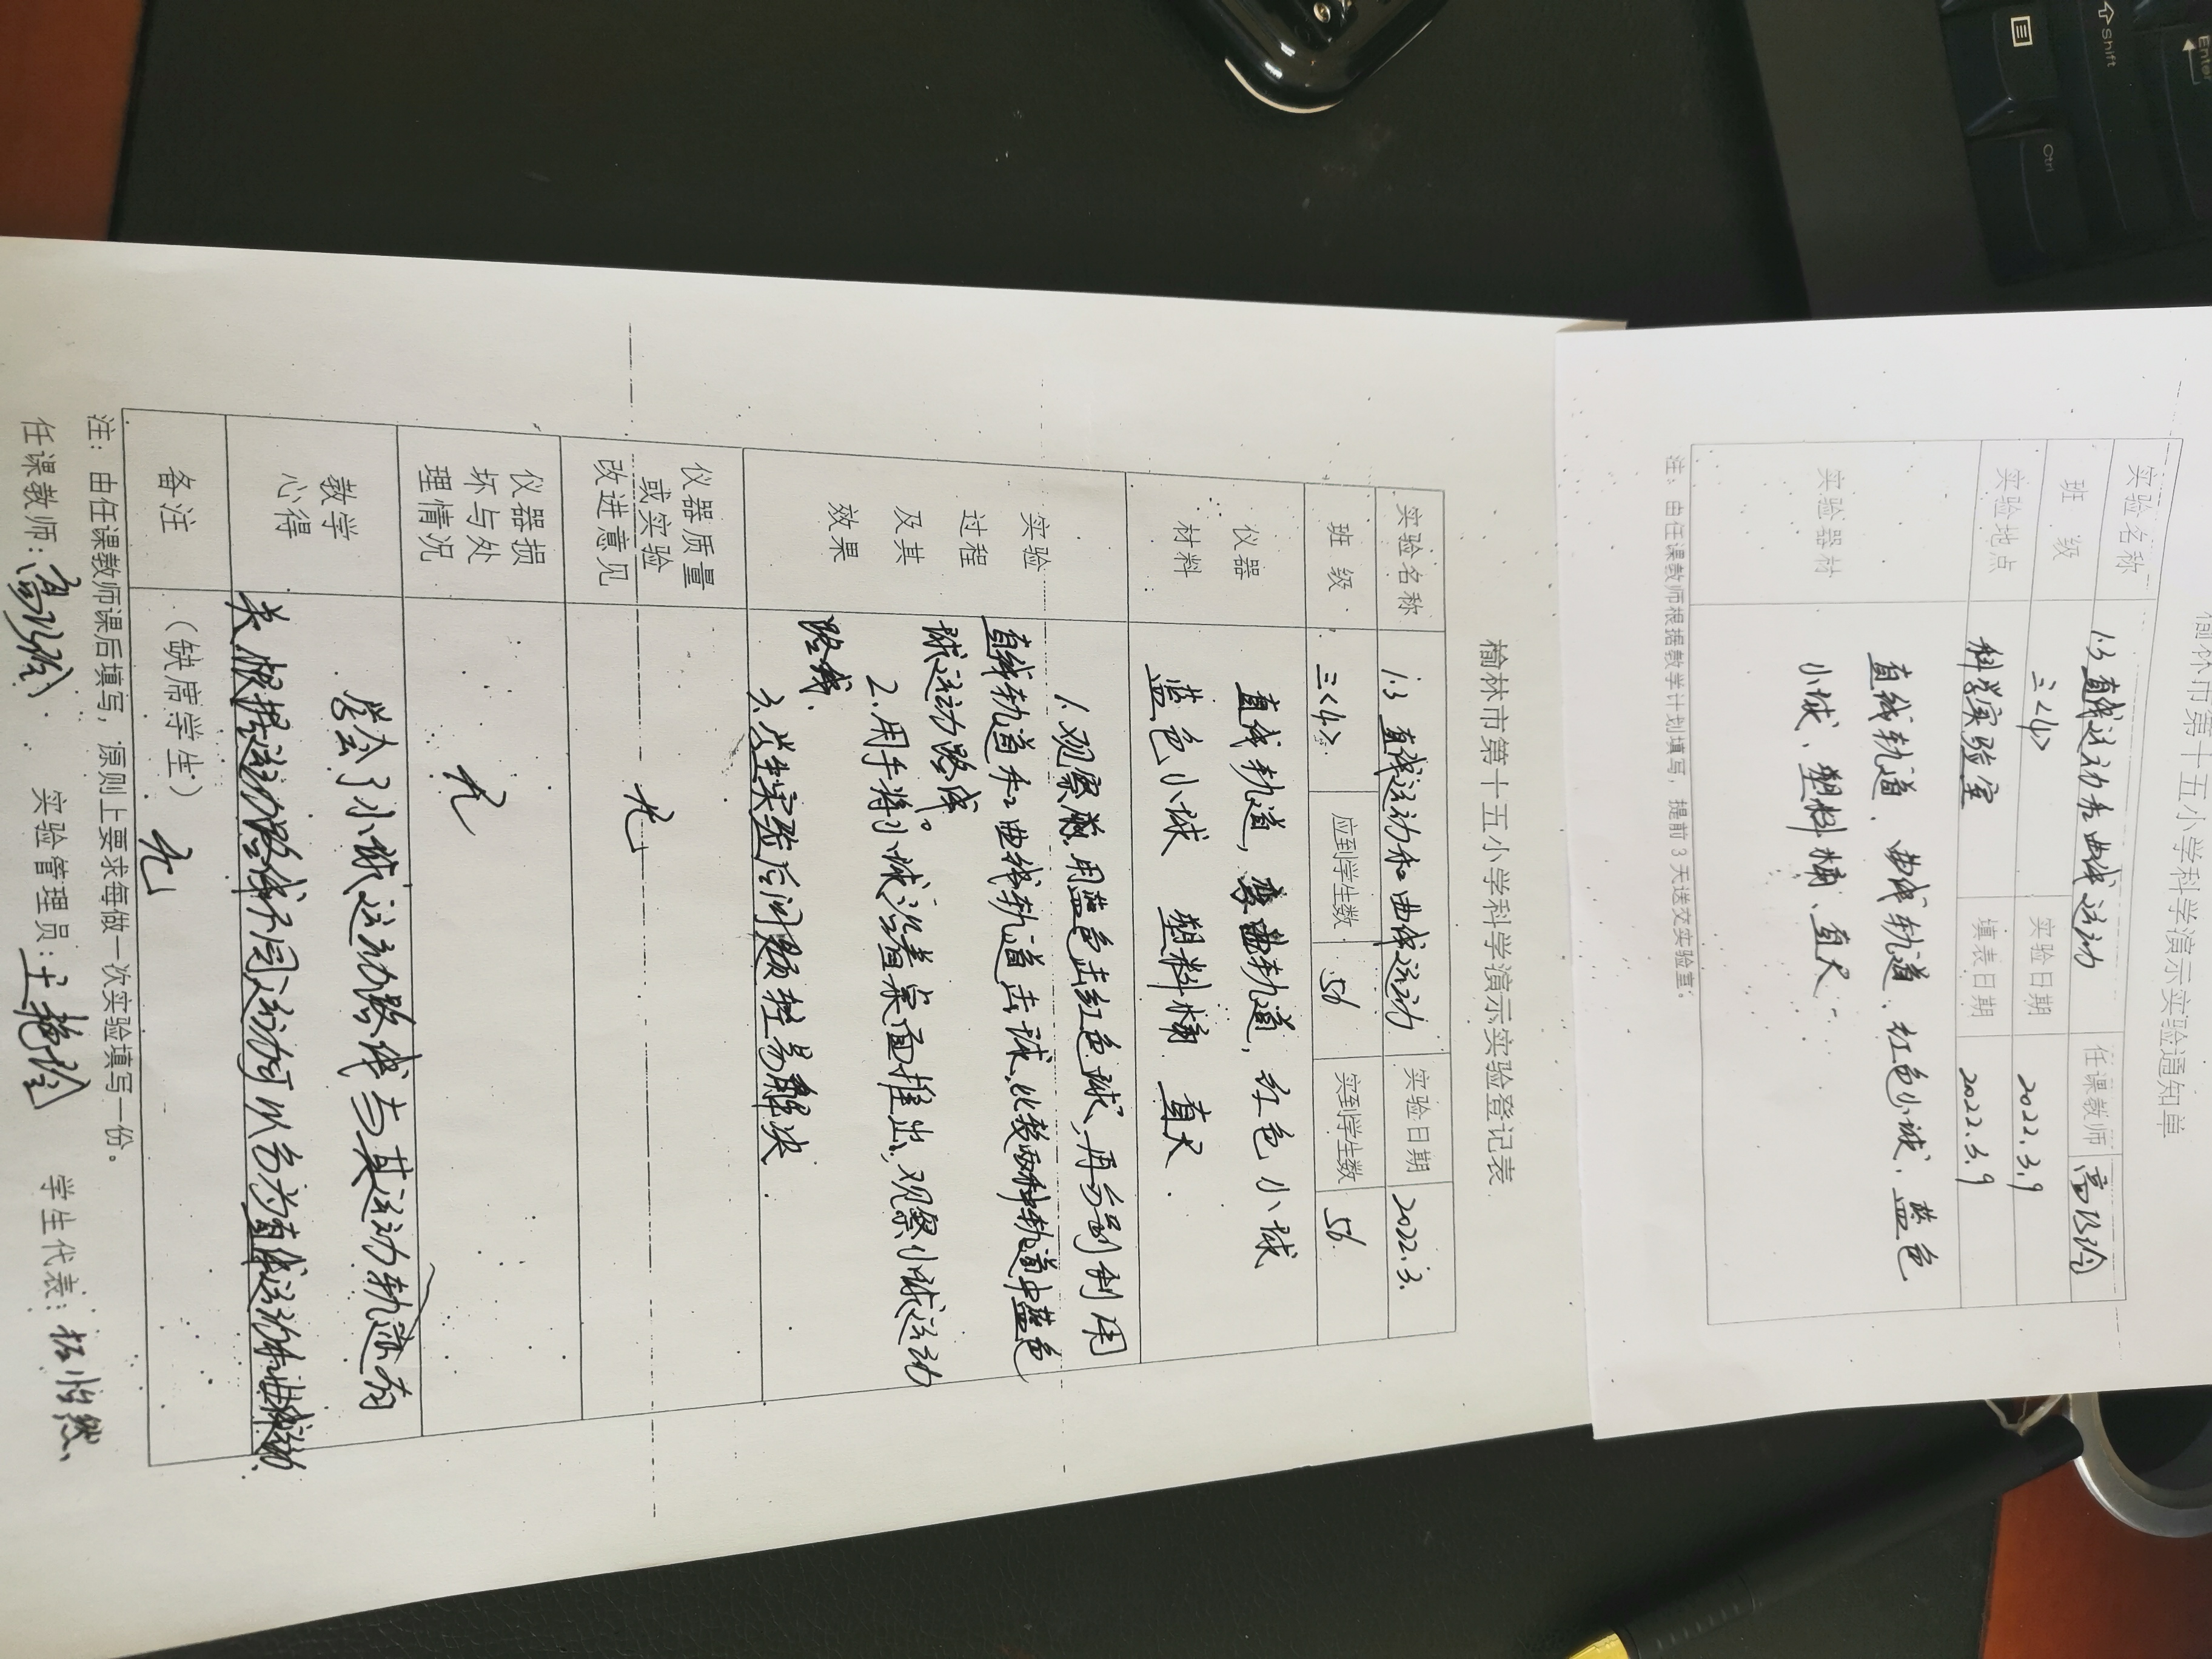 榆林市第十五小学科学演示实验通知单
实验名称 1.3 直线运动和曲线运动 任课教师
班 级 三<4> 实验日期 2022.3.9
实验地点 科学实验室 填表日期 2022.3.9
实验器材 直线轨道、曲线轨道、红色小球、蓝色
小球、塑料桶、直尺
注：由任课教师根据教学计划填写，提前3天送交实验室。
榆林市第十五小学科学演示实验登记表
实验名称 1.3 直线运动和曲线运动 实验日期 2022.3.
班 级 三<4> 应到学生数 56 实到学生数 56.
仪器 直线轨道，弯曲轨道，红色小球
材料 蓝色小球 塑料桶 直尺.
实验 1.观察前用蓝色击红色球，再分别利用
过程 直线轨道和曲线轨道击球，比较两种轨道中蓝色
球运动路线。
及其 2.用手将小球沿着桌面推出，观察小球运动
效果 路线.
3.学生实验后问题轻易解决.
仪器质量
或实验
改进意见 无
仪器损
坏与处
理情况 无
教学 学会了小球运动路线与其运动轨迹有
心得 关，根据运动路线不同运动可以分为直线运动和曲线运动
备注 （缺席学生） 无
注：由任课教师课后填写，原则上要求每做一次实验填写一份。
任课教师： 实验管理员：王艳玲 学生代表：